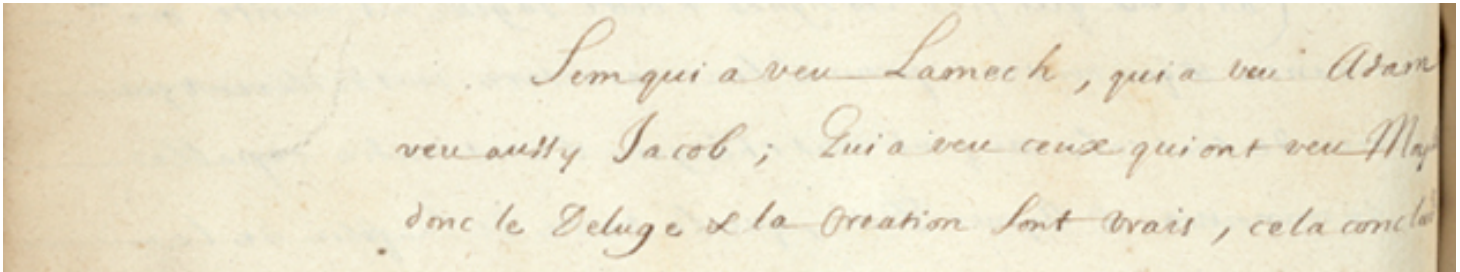 Sem qui a veu Lamech, qui a veu Adam
veu aussy Jacob; Qui a veu ceux qui ont veu
donc le Deluge & la Creation sont vrais, cela